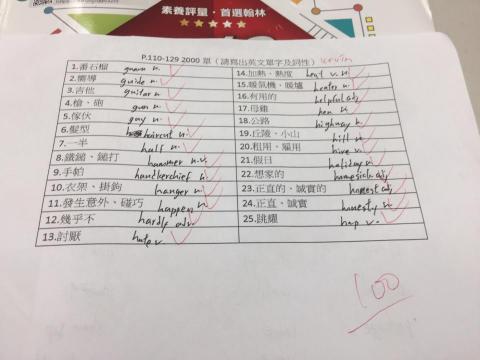 素養評量・首選翰林
P.110-129 2000 單（請寫出英文單字及詞性） Kevin
1.番石榴 guava n.
2.嚮導 guide n.
3.吉他 guitar n.
4.槍、砲 gun n.
5.傢伙 guy n.
6.髮型 haircut n.
7.一半 half n.
8.鐵鎚、鎚打 hammer n.v.
9.手帕 handkerchief n.
10.衣架、掛鉤 hanger n.
11.發生意外、碰巧 happen v.
12.幾乎不 hardly adv.
13.討厭 hate v.
14.加熱、熱度 heat v. n.
15.暖氣機、暖爐 heater n.
16.有用的 helpful adj.
17.母雞 hen n.
18.公路 highway n.
19.丘陵、小山 hill n.
20.租用、雇用 hire v.
21.假日 holiday n.
22.想家的 homesick adj.
23.正直的、誠實的 honest adj.
24.正直、誠實 honesty n.
25.跳耀 hop v.
100